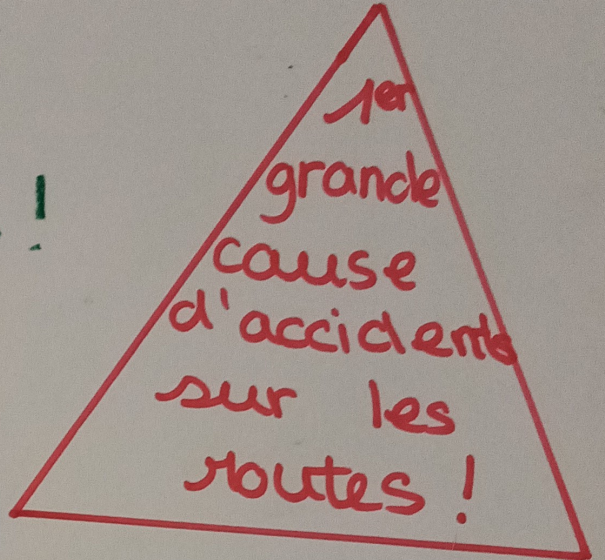 !
1er
grande
cause
d'accidents
sur les
routes !